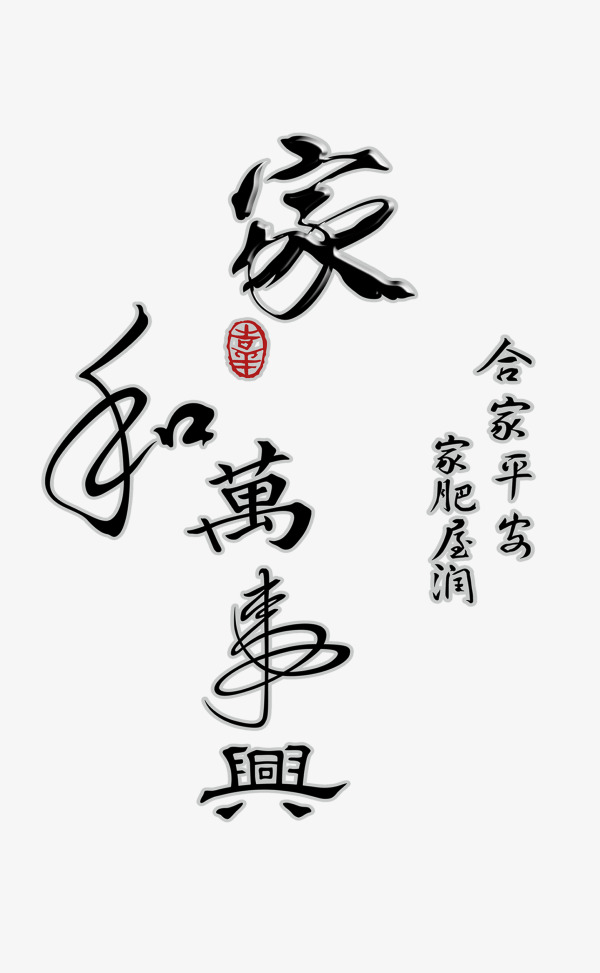 家和萬事興
合家平安
家肥屋润